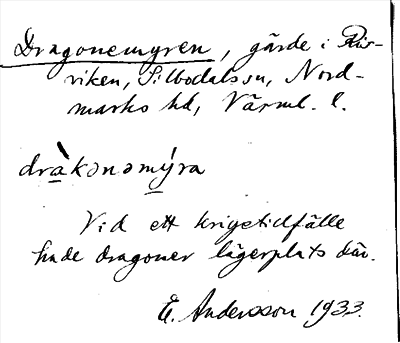 Dragonemyren, gärde i Ris-
viken, Silbodals sn, Nord-
marks hd, Värml. l.
drà̱kənəmýra
Vid ett krigstillfälle
hade dragoner lägerplats där.
E. Andersson 1933.